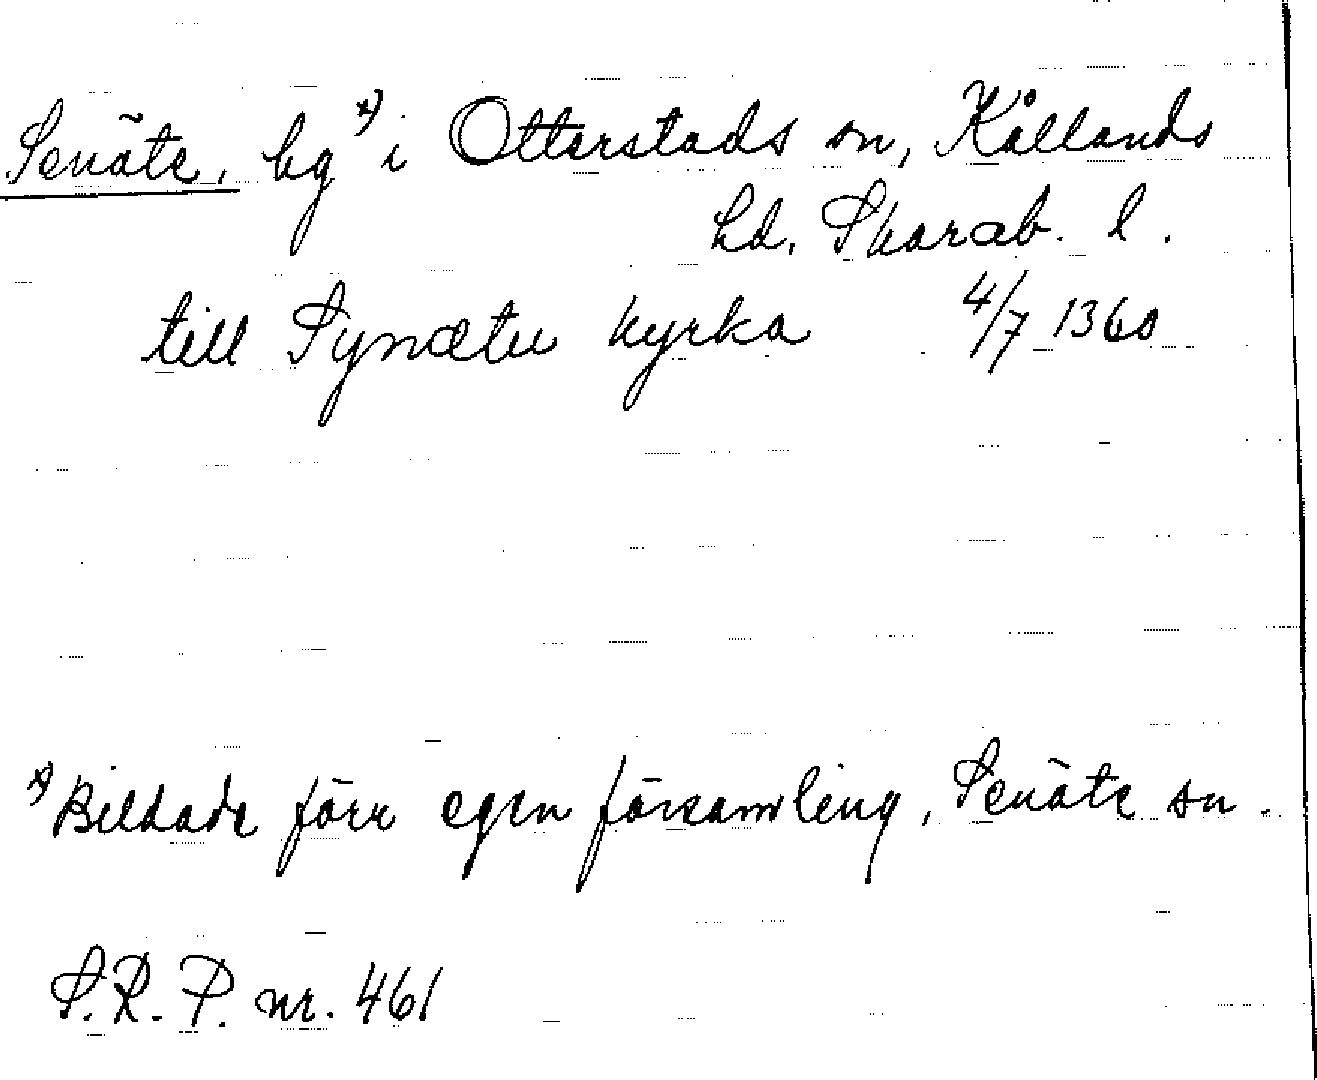 Senäte, bg x) i Otterstads sn, Kållands
hd. Skarab. l.
till Synætu kyrka 4/7 1360
x) Bildade förr egen församling, Senäte sn.
S.R.P. nr. 461